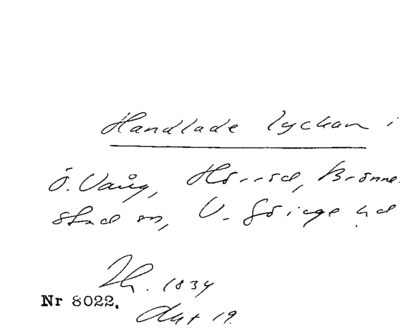 Handlade lyckan i
Ö. Vång, Hörröd, Brönne
stad sn, V. Göinge hd
Th. 1834
Nr 8022.
19.